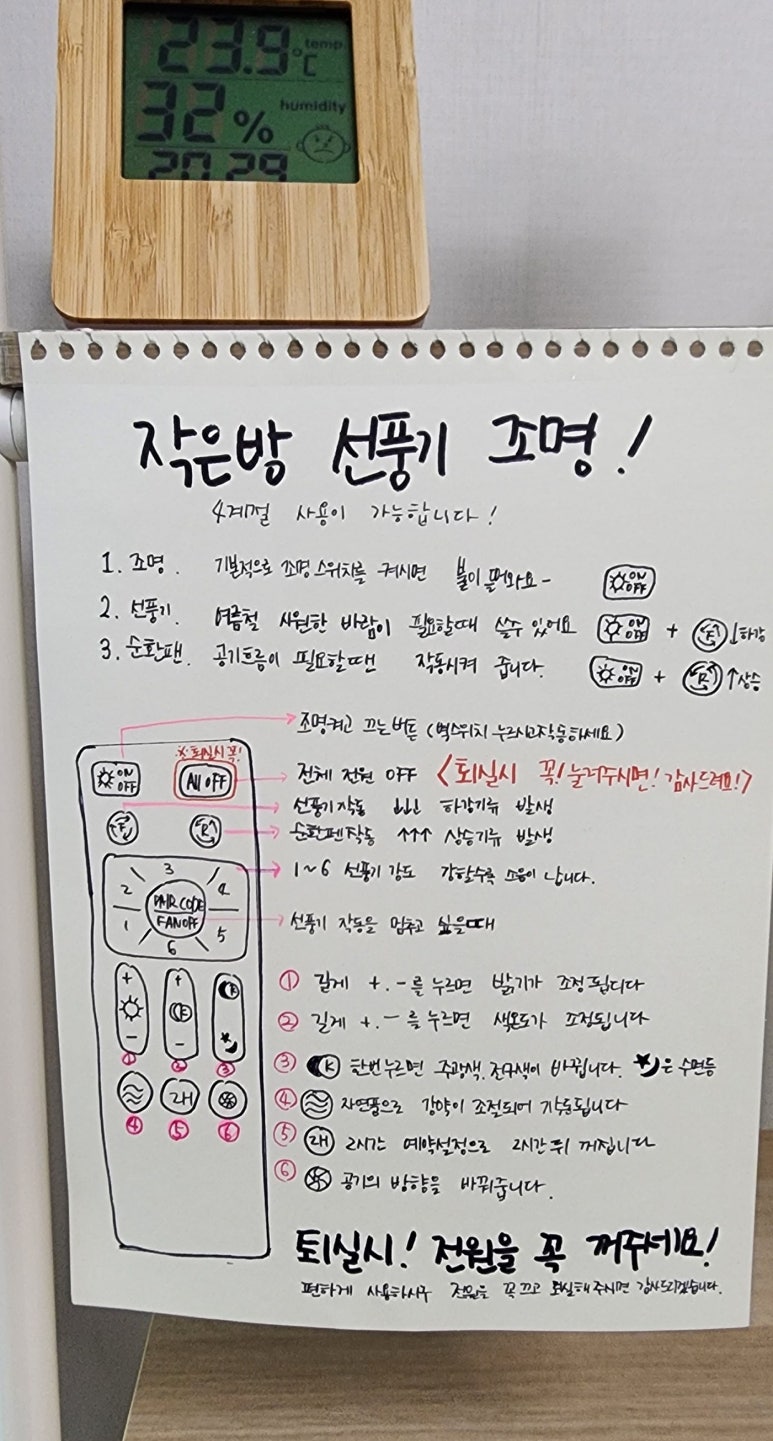 23.9 temp °C
32 % humidity
20 29
작은방 선풍기 조명!
4계절 사용이 가능합니다!
1. 조명. 기본적으로 조명스위치를 켜시면 불이 들어와요- ON OFF
2. 선풍기. 여름철 시원한 바람이 필요할때 쓸수 있어요 ON OFF + F ↓하강
3. 순환팬. 공기흐름이 필요할땐 작동시켜 줍니다. ON OFF + R ↑상승
조명켜고 끄는버튼 (벽스위치 누르시고작동하세요)
※퇴실시 꼭!
ON OFF All OFF 전체 전원 OFF <퇴실시 꼭! 눌러주시면! 감사드려요!>
선풍기작동 ↓↓↓ 하강기류 발생
F R 순환펜작동 ↑↑↑ 상승기류 발생
1~6 선풍기 강도 강할수록 소음이 납니다.
1 2 3 4 5 6
PAIR CODE
FAN OFF 선풍기 작동을 멈추고 싶을때
① 길게 +.-를 누르면 밝기가 조정됩니다
② 길게 +.-를 누르면 색온도가 조정됩니다
③ K 한번누르면 주광색.전구색이 바뀝니다. 은 수면등
④ 자연풍으로 강약이 조절되어 작동됩니다
⑤ 2H 2시간 예약설정으로 2시간뒤 꺼집니다
⑥ 공기의 방향을 바꿔줍니다.
+ - + - K
① ② ③
2H
④ ⑤ ⑥
퇴실시! 전원을 꼭 꺼주세요!
편하게 사용하시구 전원을 꼭 끄고 퇴실해주시면 감사드리겠습니다.